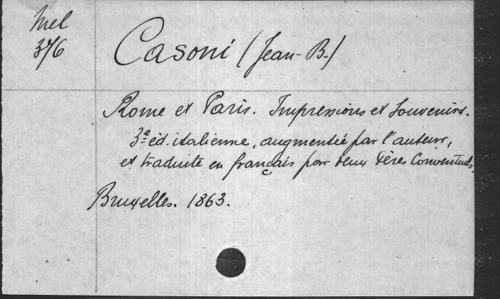 Mel
376
Casoni (Jean-B.)
Rome et Paris. Impressions et Souvenirs.
3e éd. italienne, augmentée par l'auteur,
et traduite en français par deux Pères Conventuels.
Bruxelles. 1863.